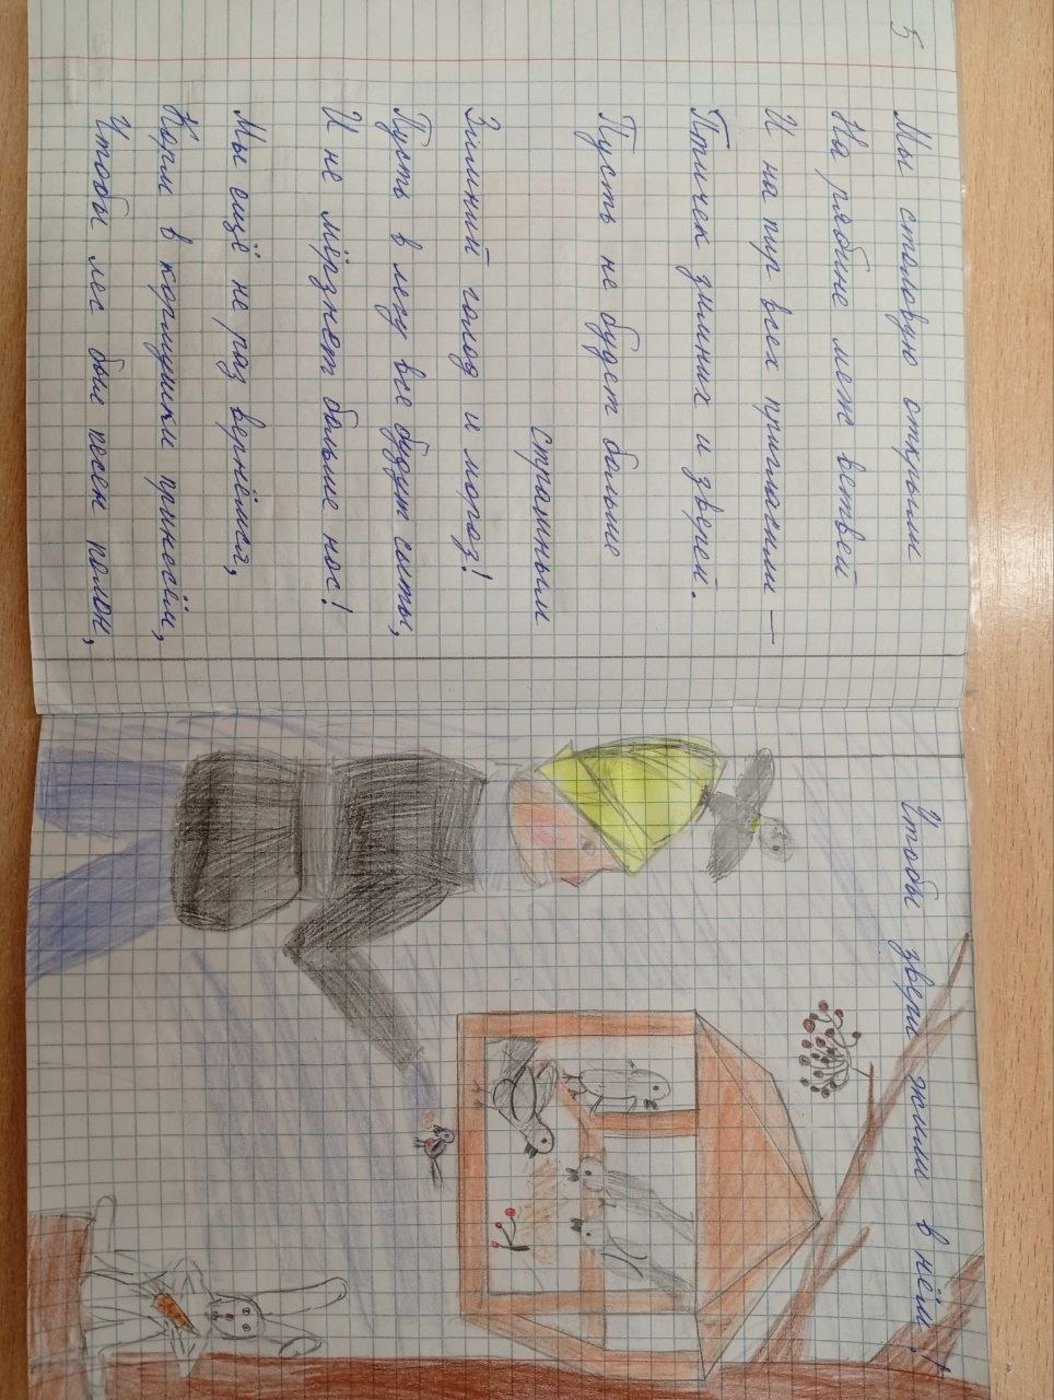 5
Мы столовую открыли
На рябине меж ветвей
И на пир всех пригласили —
Птичек зимних и зверей.
Пусть не будет больше
страшным
Зимний голод и мороз!
Пусть в лесу все будут сыты,
И не мёрзнет больше нос!
Мы ещё не раз вернёмся,
Корм в кормушки принесём,
Чтобы лес был песен полон,
Чтобы звери жили в нём!